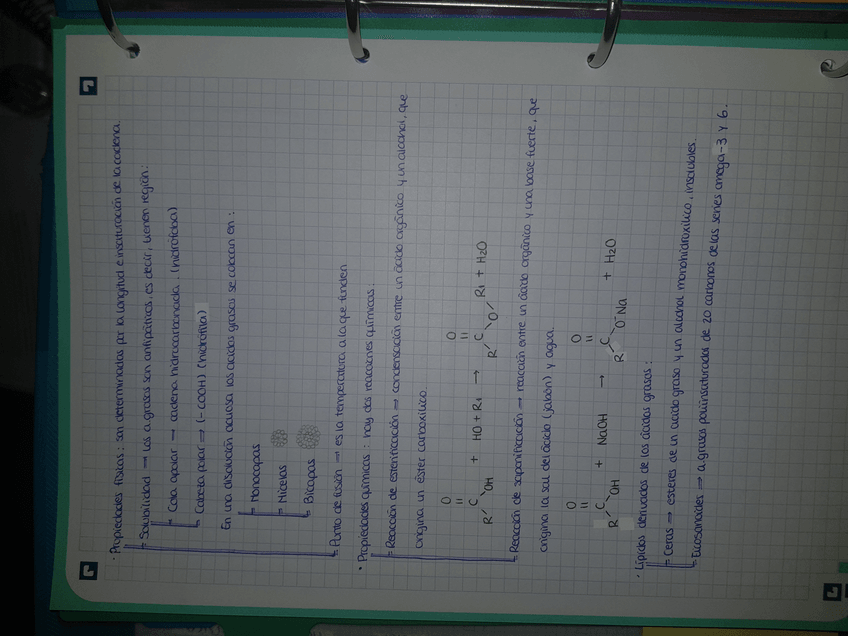 · Propiedades físicas: son determinadas por la longitud e insaturación de la cadena.
- Solubilidad → Los a.grasos son antipáticos, es decir, tienen región:
- Cola apolar → cadena hidrocarbonada. (hidrófoba)
- Cabeza polar → (-COOH) (hidrófila)
En una disolución acuosa los ácidos grasos se colocan en:
- Monocapas
- Micelas
- Bicapas
- Punto de fusión → es la temperatura a la que funden
· Propiedades químicas: hay dos reacciones químicas
- Reacción de esterificación → condensación entre un ácido orgánico y un alcohol, que
origina un éster carboxílico.
R-C(=O)-OH + HO+R1 → R-C(=O)-O-R1 + H2O
- Reacción de saponificación → reacción entre un ácido orgánico y una base fuerte, que
origina la sal del ácido (jabón) y agua.
R-C(=O)-OH + NaOH → R-C(=O)-O⁻Na + H2O
· Lípidos derivados de los ácidos grasos:
- Ceras → ésteres de un ácido graso y un alcohol monohidroxílico, insolubles.
- Eicosanoides → a.grasos poliinsaturados de 20 carbonos de las series omega-3 y 6.